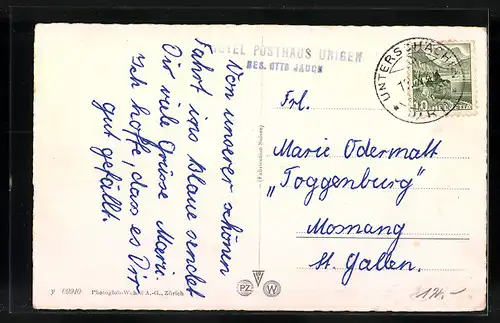 HOTEL POSTHAUS URIGEN
BES. OTTO JAUCH
Von unserer schönen
Fahrt ins blaue sendet
Dir viele Grüsse Marie.
Ich hoffe, dass es Dir
gut gefällt.
UNTERSCHÄCHEN
10 HELVETIA
Frl.
Marie Odermatt
„Toggenburg"
Mosnang
St. Gallen.
y 66910 Photoglob-Wehrli A.-G., Zürich
PZ W